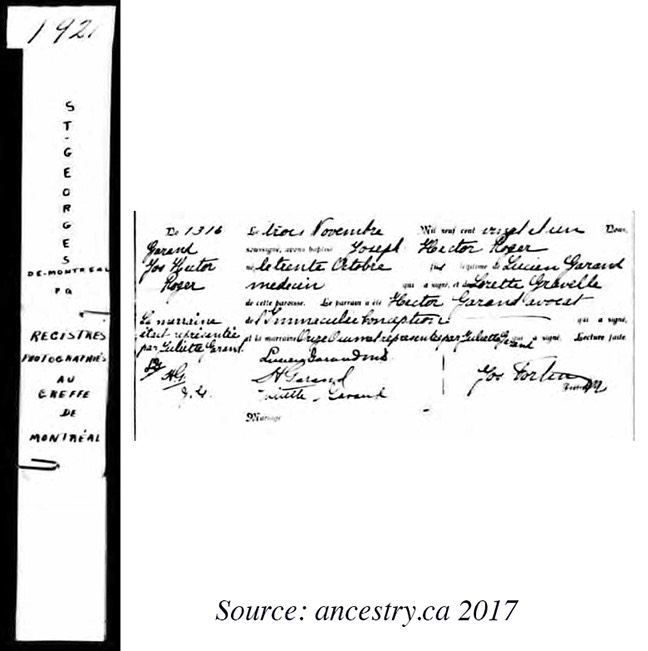 1921
ST-GEORGES
DE-MONTREAL
PQ
REGISTRES
PHOTOGRAPHIÉS
AU
GREFFE
DE
MONTRÉAL
De 1316
Garand
Jos Hector
Roger
La marraine
était représentée
par Juliette Garand.
H.G.
J.G.
Le trois Novembre Mil neuf cent vingt et un Nous,
soussigné, avons baptisé Joseph Hector Roger
né, le trente Octobre fils légitime de Lucien Garand
medecin qui a signé, et de Lorette Gravelle
de cette paroisse. Le parrain a été Hector Garand avocat
de l'Immaculée Conception qui a signé,
et la marraine représentée par Juliette Garand qui a signé. Lecture faite.
Lucien Garand md
H Garand
Juliette Garand
Jos Fortin
Mariage
Source: ancestry.ca 2017